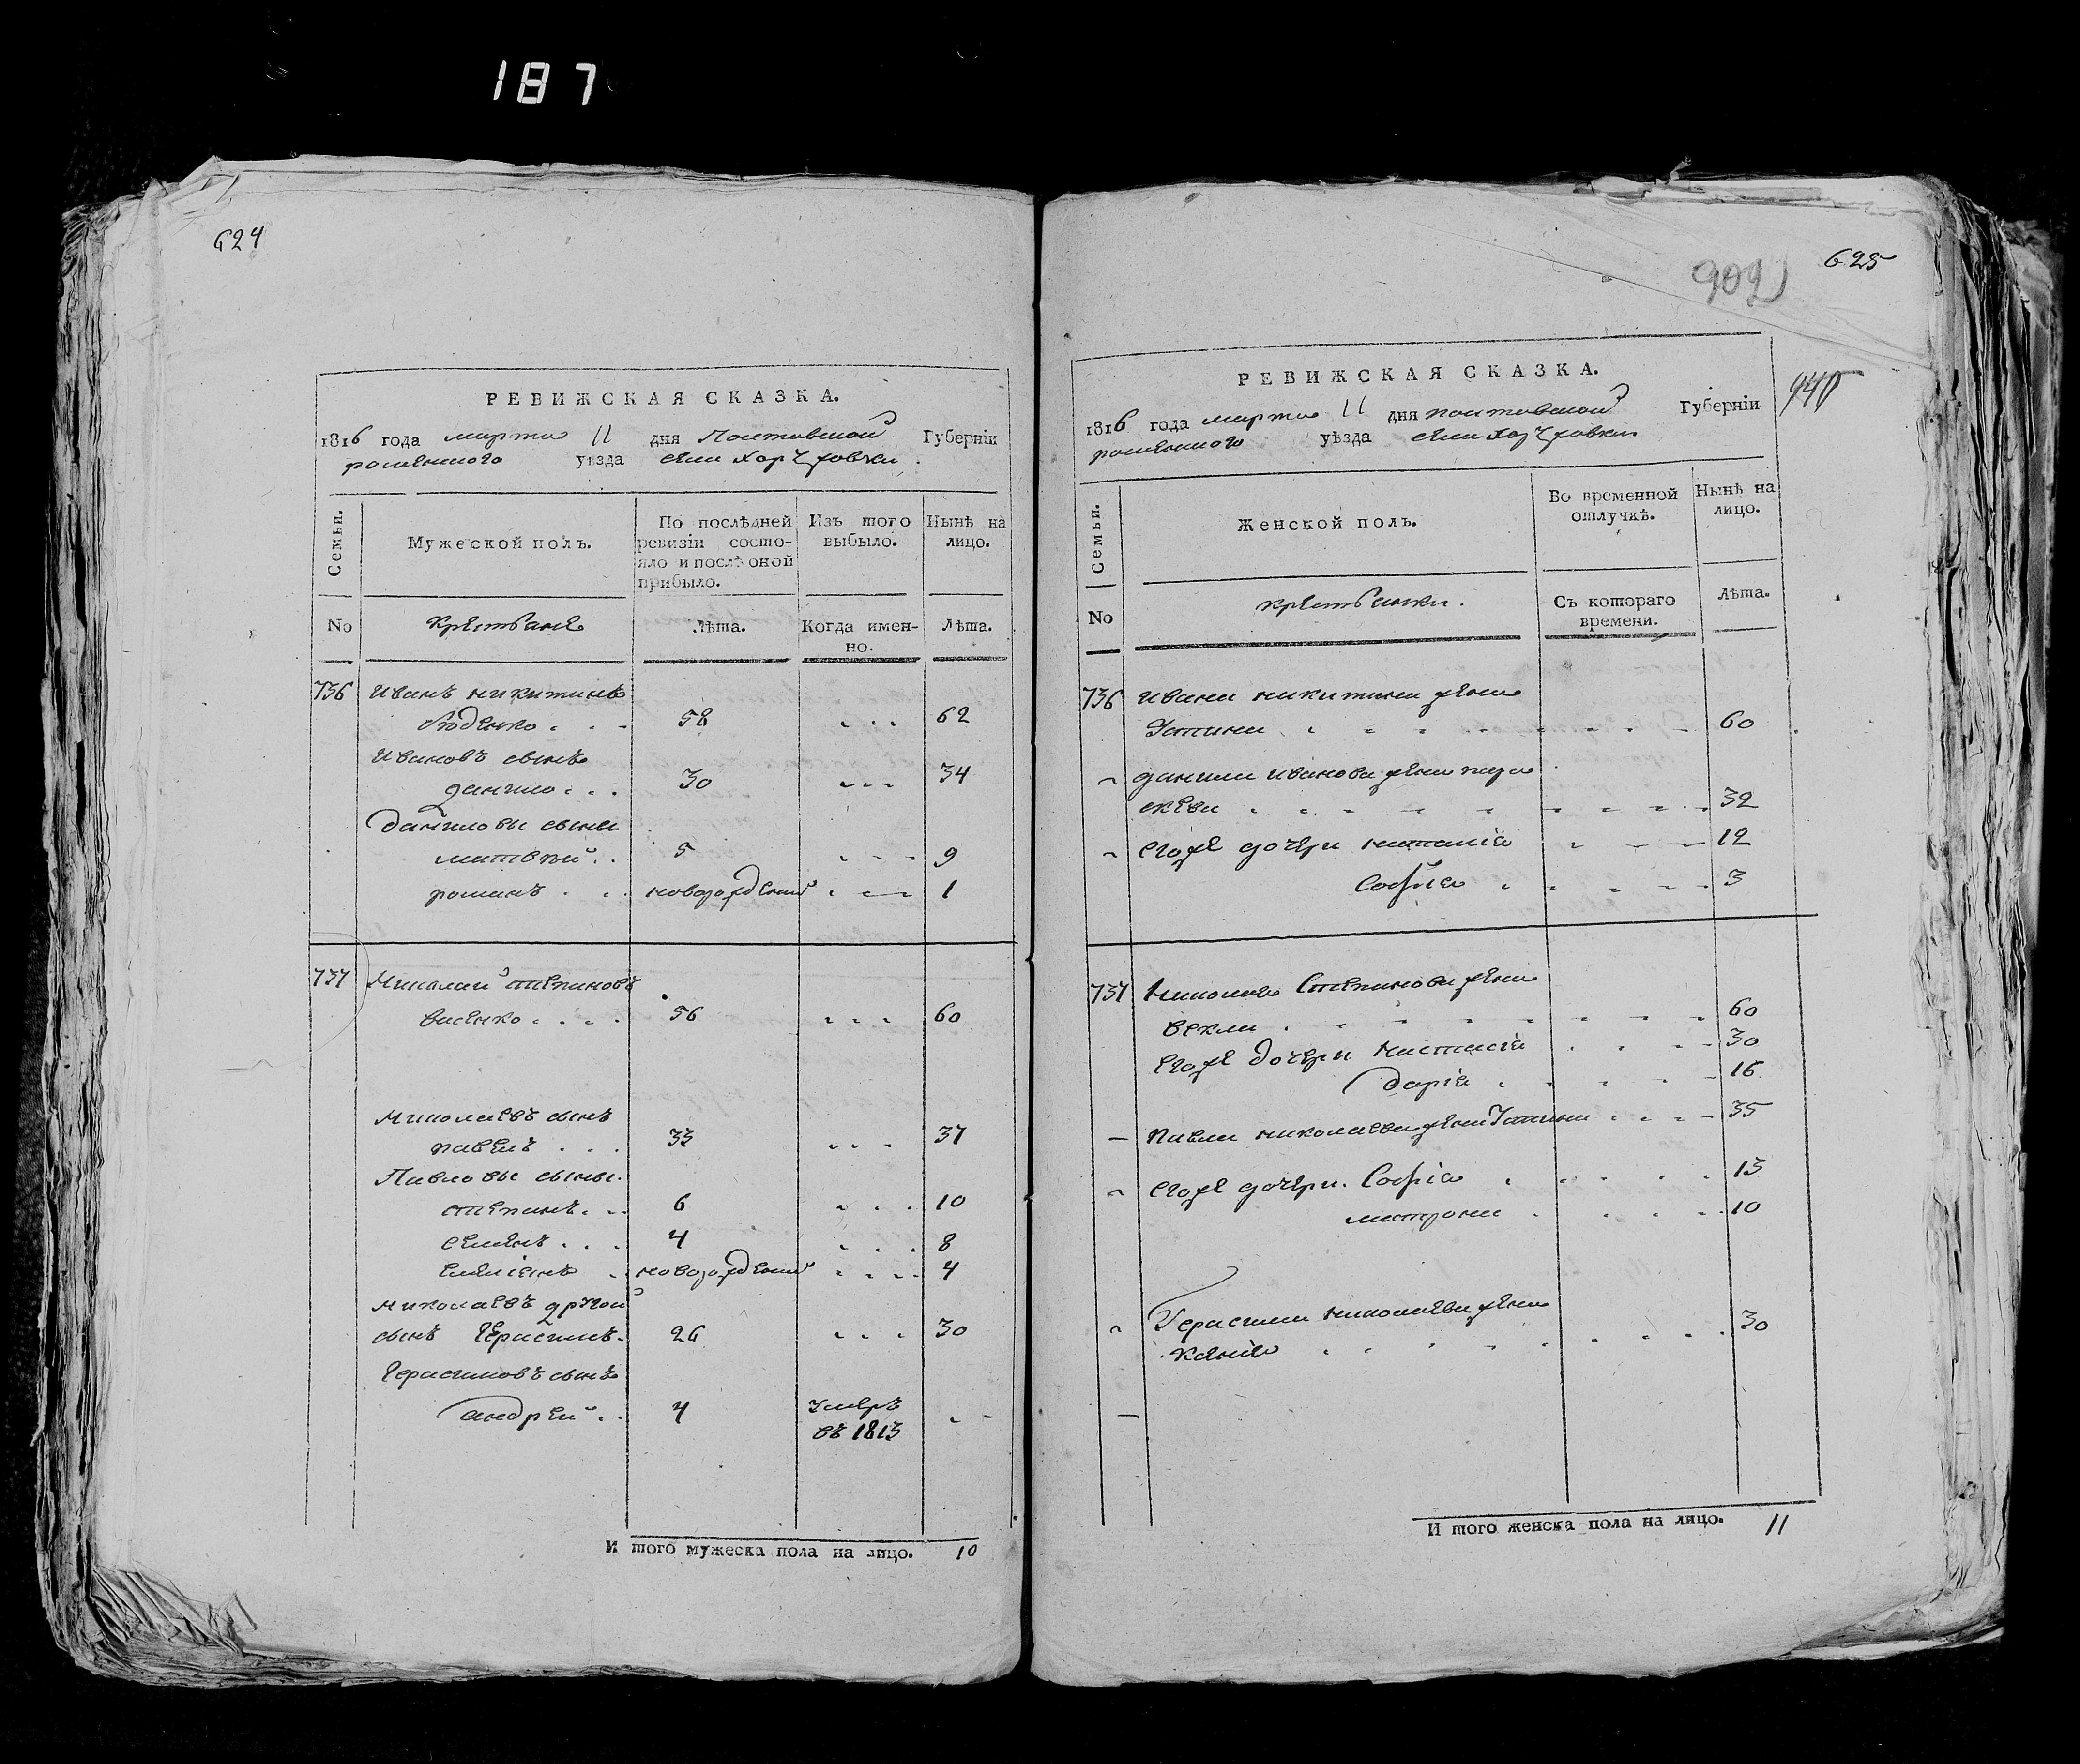 187
624
РЕВИЖСКАЯ СКАЗКА.
1816 года марта 11 дня Полтавской Губерніи
роменского уѣзда села
Семьи.
Мужеской полъ.
По послѣдней ревизіи состояло и послѣ оной прибыло.
Изъ того выбыло.
Нынѣ на лицо.
No
Крестьяне
Лѣта.
Когда именно.
Лѣта.
736 Иванъ никитинъ
58 62
Ивановъ сынъ
данило 30 34
Даниловы сыны
матвѣй 5 9
романъ новорожденый 1
737 Николай степановъ
56 60
николаевъ сынъ
павелъ 33 37
Павловы сыны
степанъ 6 10
семенъ 4 8
емелianъ новорожденый 4
николаевъ другой
сынъ Герасимъ 26 30
Герасимовъ сынъ
андрей 4 умеръ
въ 1813
И того мужеска пола на лицо. 10
625
902
940
РЕВИЖСКАЯ СКАЗКА.
1816 года марта 11 дня полтавской Губерніи
роменского уѣзда села
Семьи.
Женской полъ.
Во временной отлучкѣ.
Нынѣ на лицо.
No
крестьянки.
Съ котораго времени.
Лѣта.
736 ивана никитина жена
Устина 60
данила иванова жена пара
скева 32
егоже дочери наталiя 12
Софiя 3
737 николая Степанова жена
векла 60
егоже дочери настасiя 30
дарiя 16
павла николаева жена Устина 35
егоже дочери Софiя 13
матрона 10
Герасима николаева жена
ксенiя 30
И того женска пола на лицо. 11